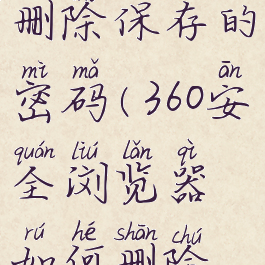 删除保存的
mì mǎ ān
密码(360安
quán liú lǎn qì
全浏览器
rú hé shān chú
如何删除